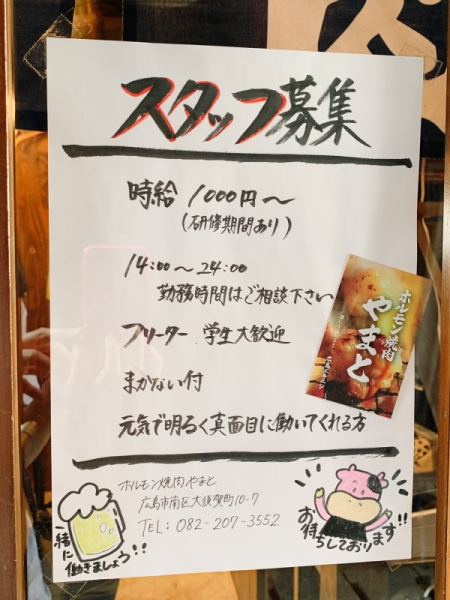 スタッフ募集
時給 1000円〜
(研修期間あり)
14:00〜24:00
勤務時間はご相談下さい
フリーター 学生大歓迎
まかない付
元気で明るく真面目に働いてくれる方
ホルモン焼肉
やまと
ホルモン焼肉やまと
広島市南区大須賀町10-7
TEL: 082-207-3552
一緒に
働きましょう!!
お待ちしております!!